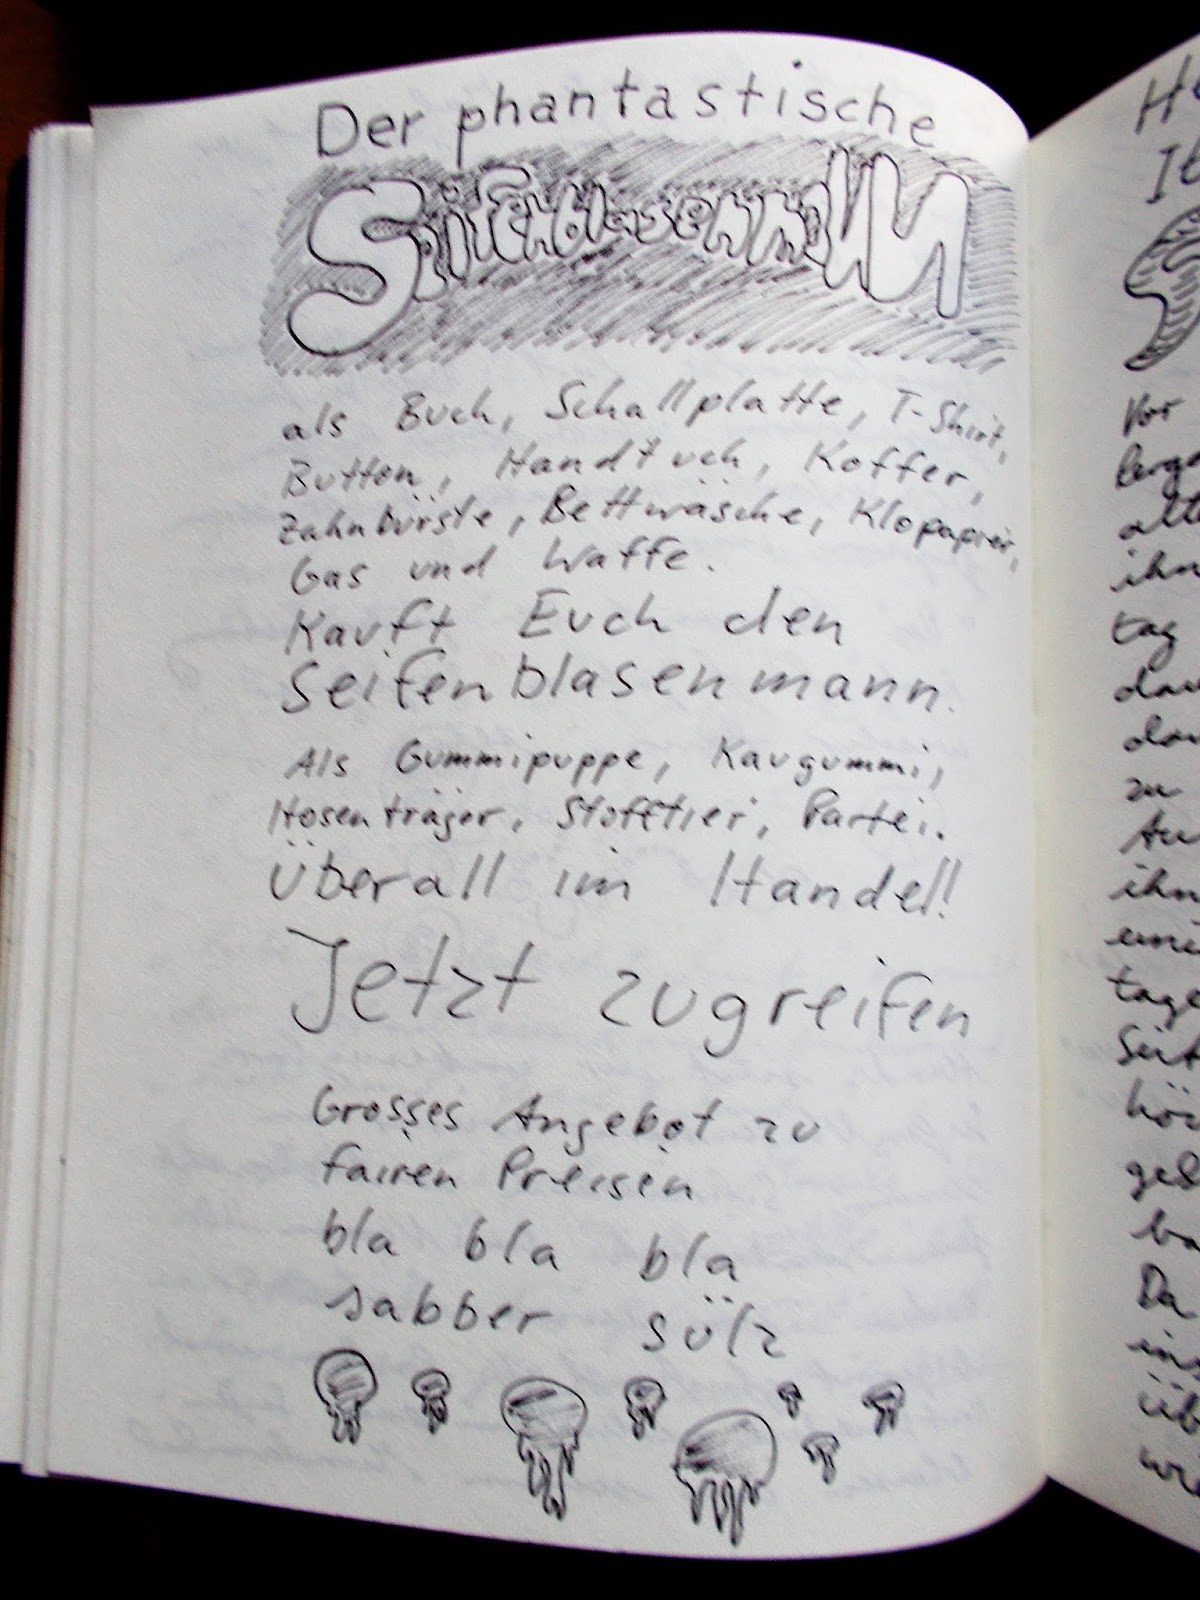 Der phantastische
Seifenblasenmann
als Buch, Schallplatte, T-Shirt,
Button, Handtuch, Koffer,
Zahnbürste, Bettwäsche, Klopapier,
Gas und Waffe.
Kauft Euch den
Seifenblasenmann.
Als Gummipuppe, Kaugummi,
Hosenträger, Stofftier, Partei.
Überall im Handel!
Jetzt zugreifen
Grosses Angebot zu
fairen Preisen
bla bla bla
sabber sülz
Vor
ihn
tag
zu
ihn
tage
Da